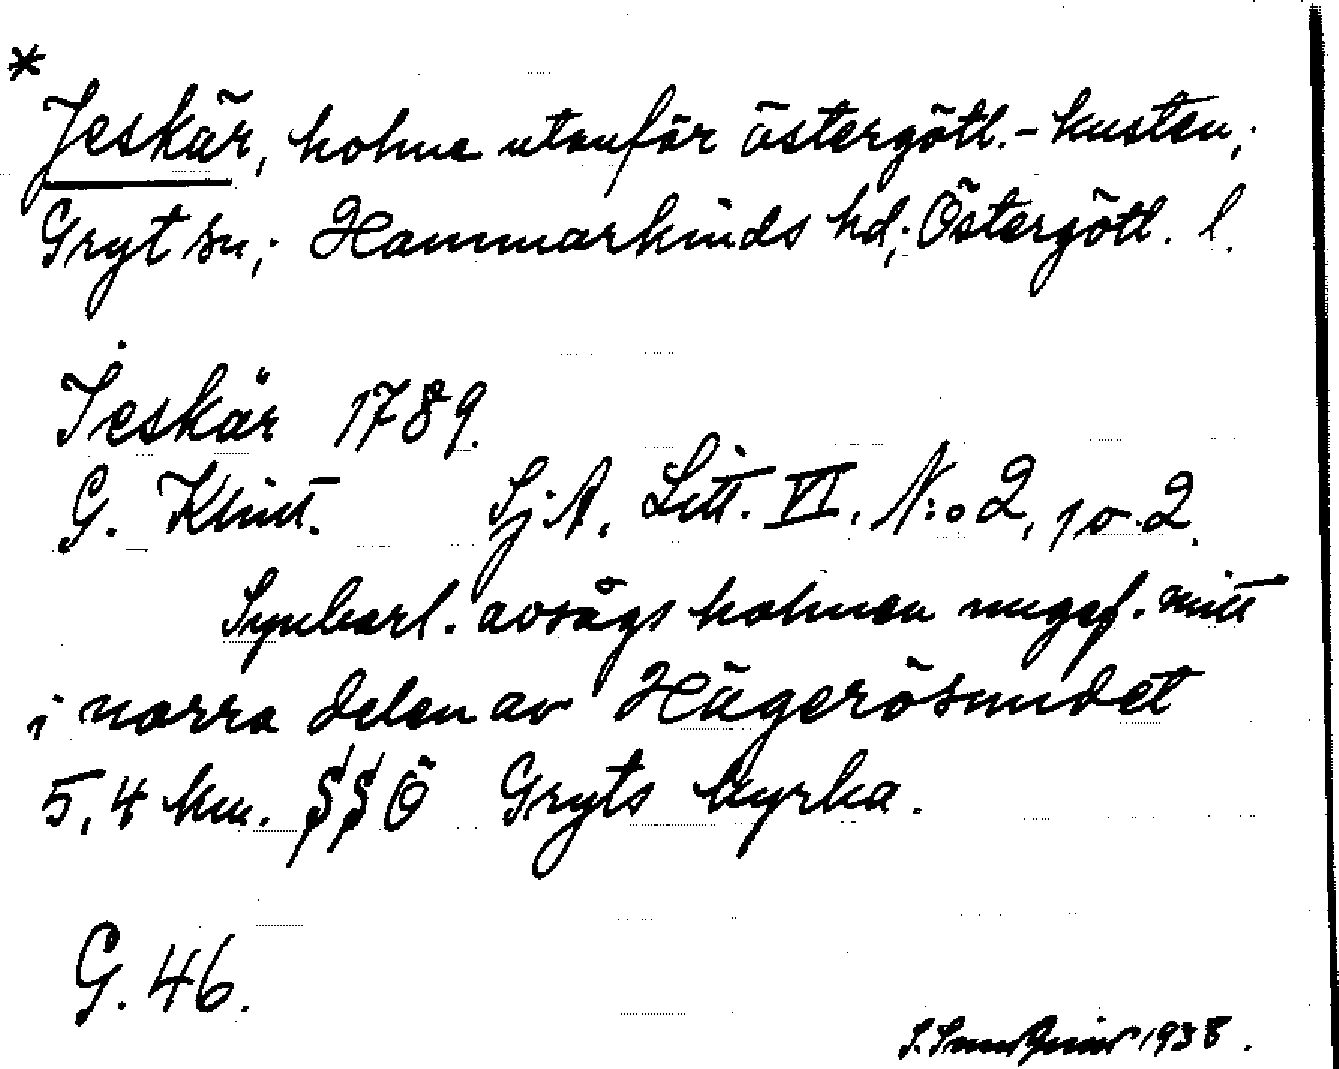 *
Jeskär, holme utanför östergötl.-kusten;
Gryt sn; Hammarkinds hd; Östergötl. l.
Jeskär 1789.
G. Klint. Sj.A. Litt. VI. N:o 2, p. 2.
Synbarl. avsågs holmen ungef. mitt
i norra delen av Hägerösundet
5,4 km. SSÖ Gryts kyrka.
G. 46.
1938.